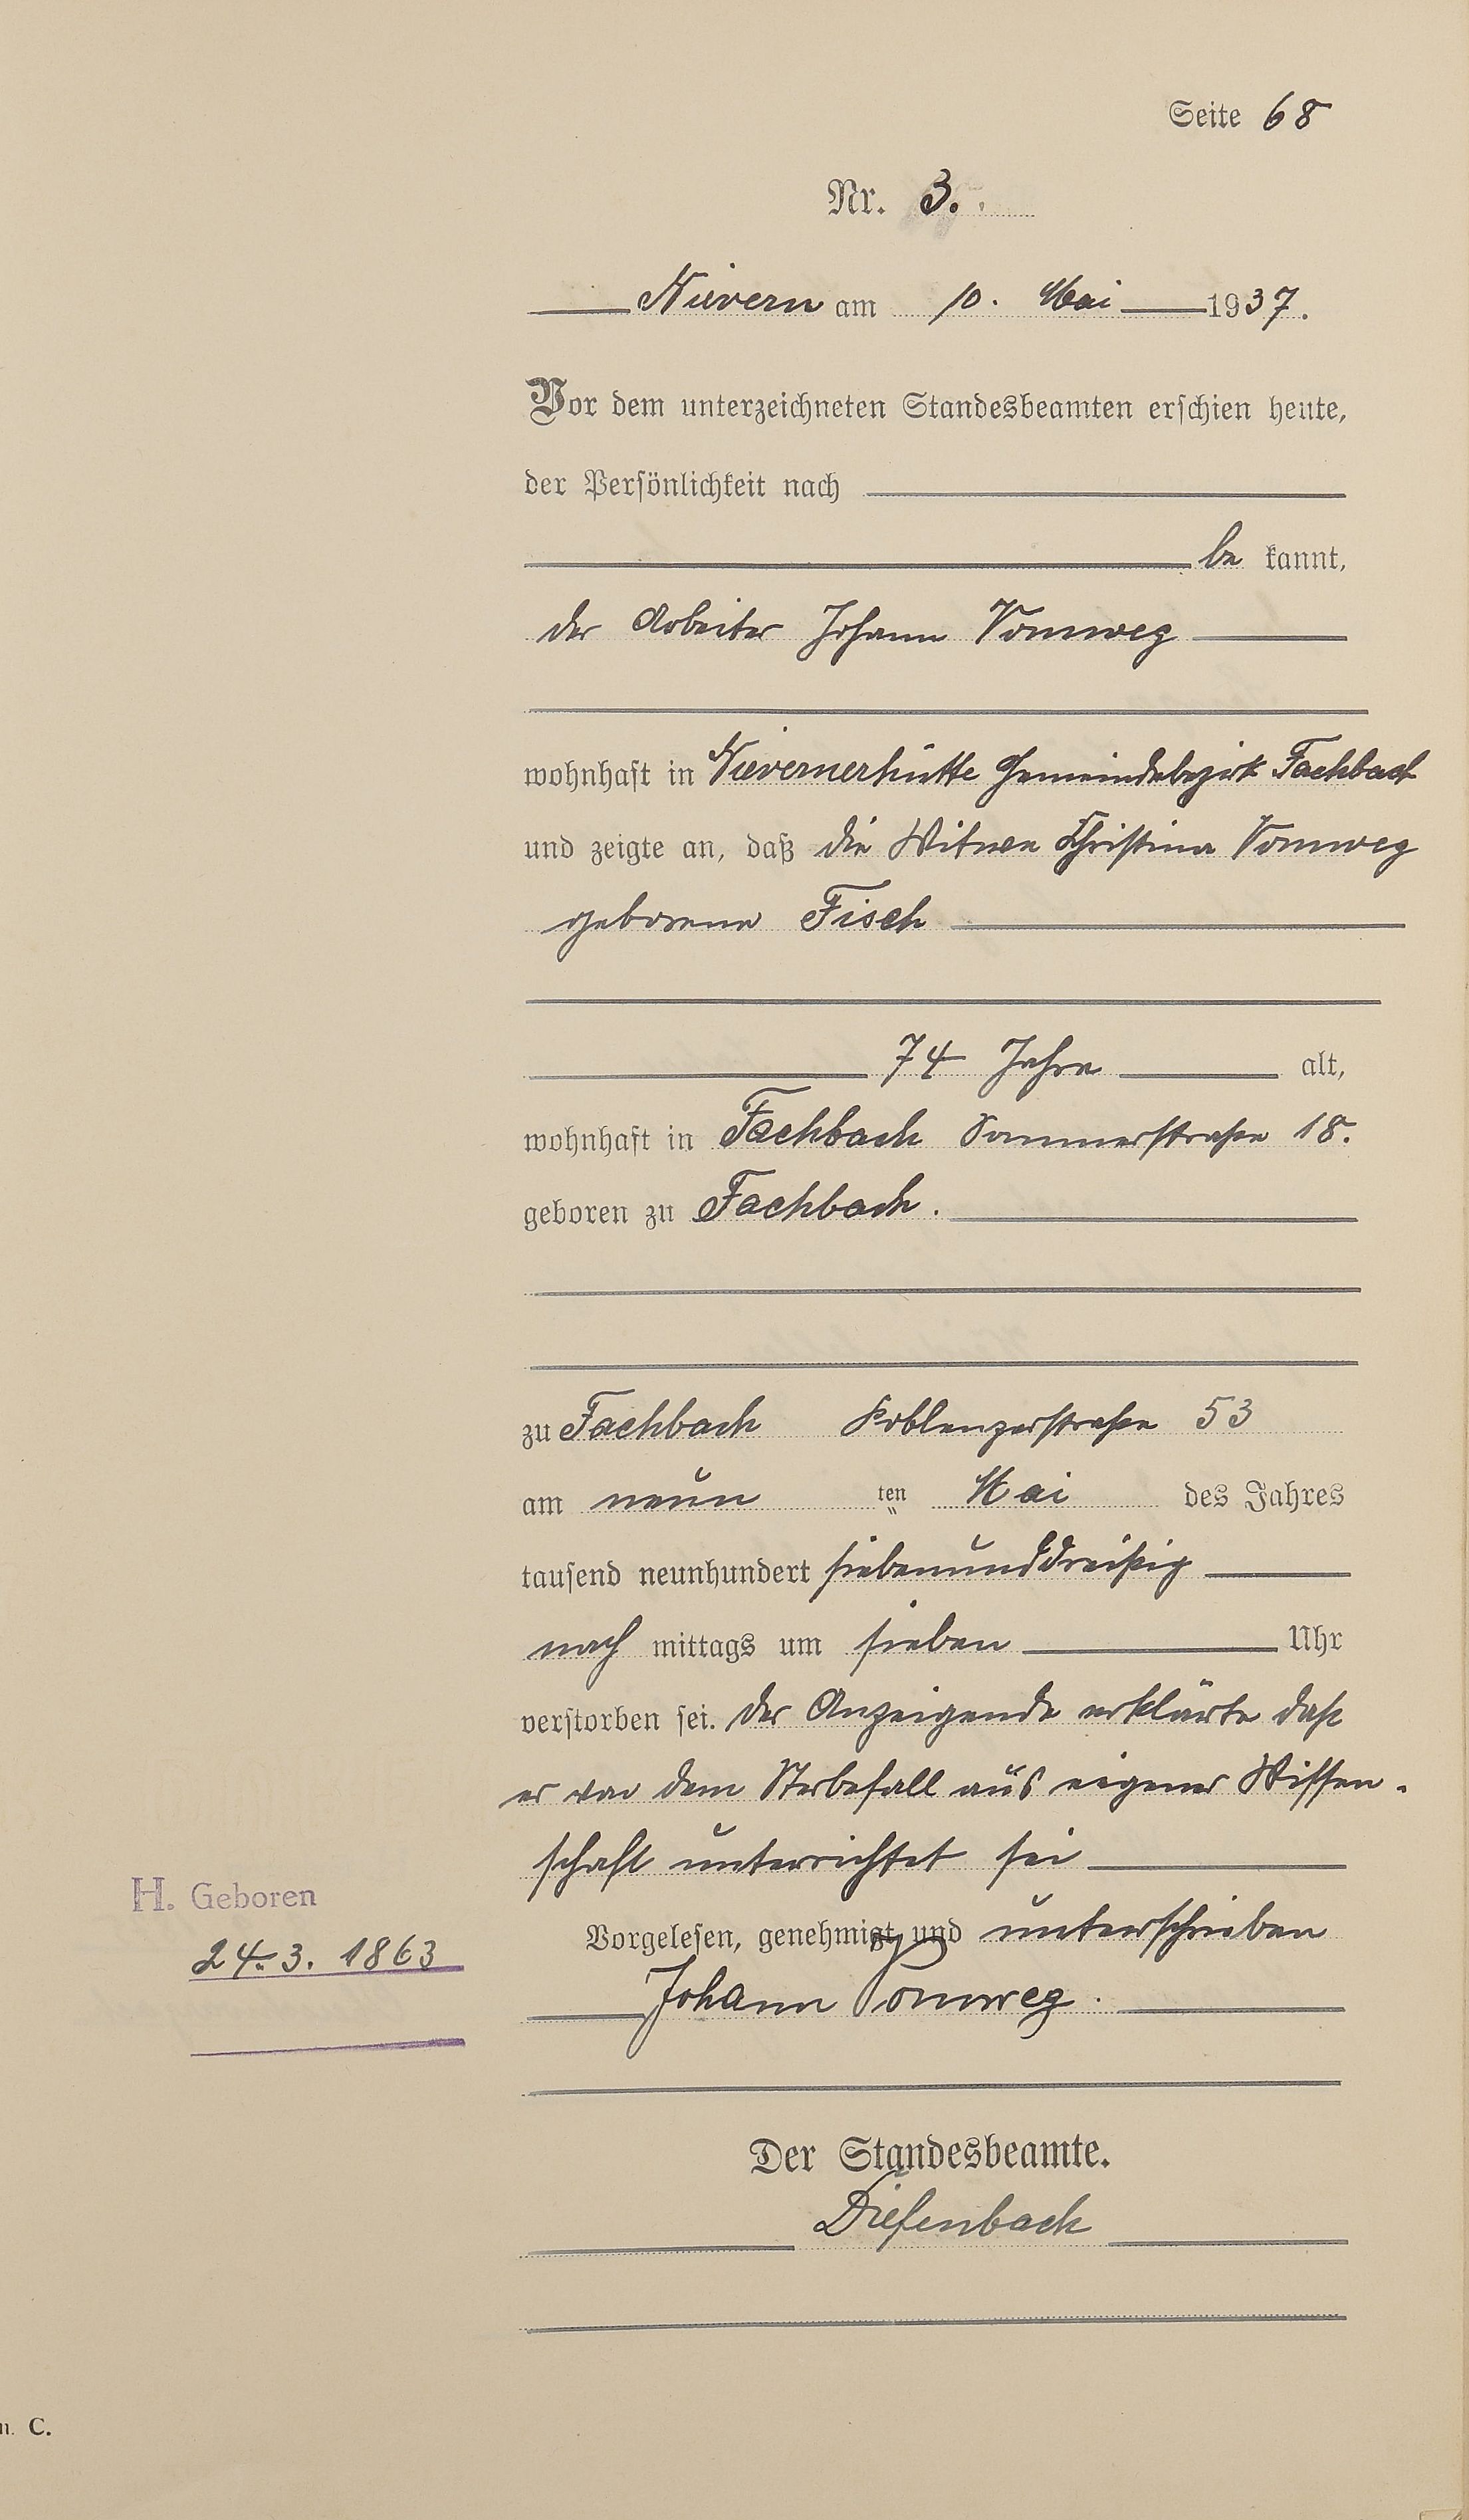 Seite 68
Nr. 3.
Nievern am 10. Mai 1937.
Vor dem unterzeichneten Standesbeamten erschien heute,
der Persönlichkeit nach
be kannt,
der Arbeiter Johann Vomweg
wohnhaft in Nievernerhütte Gemeindebezirk Fachbach
und zeigte an, daß die Witwe Christina Vomweg
geborene Fisch
74 Jahre alt,
wohnhaft in Fachbach Sommerstraße 18.
geboren zu Fachbach.
zu Fachbach Koblenzerstraße 53
am neun ten Mai des Jahres
tausend neunhundert siebenunddreißig
nach mittags um sieben Uhr
verstorben sei. Der Anzeigende erklärte daß
er von dem Sterbefall aus eigener Wissen-
schaft unterrichtet sei
Vorgelesen, genehmigt und unterschrieben
Johann Vomweg.
H. Geboren
24.3. 1863
Der Standesbeamte.
Diefenbach
n. C.